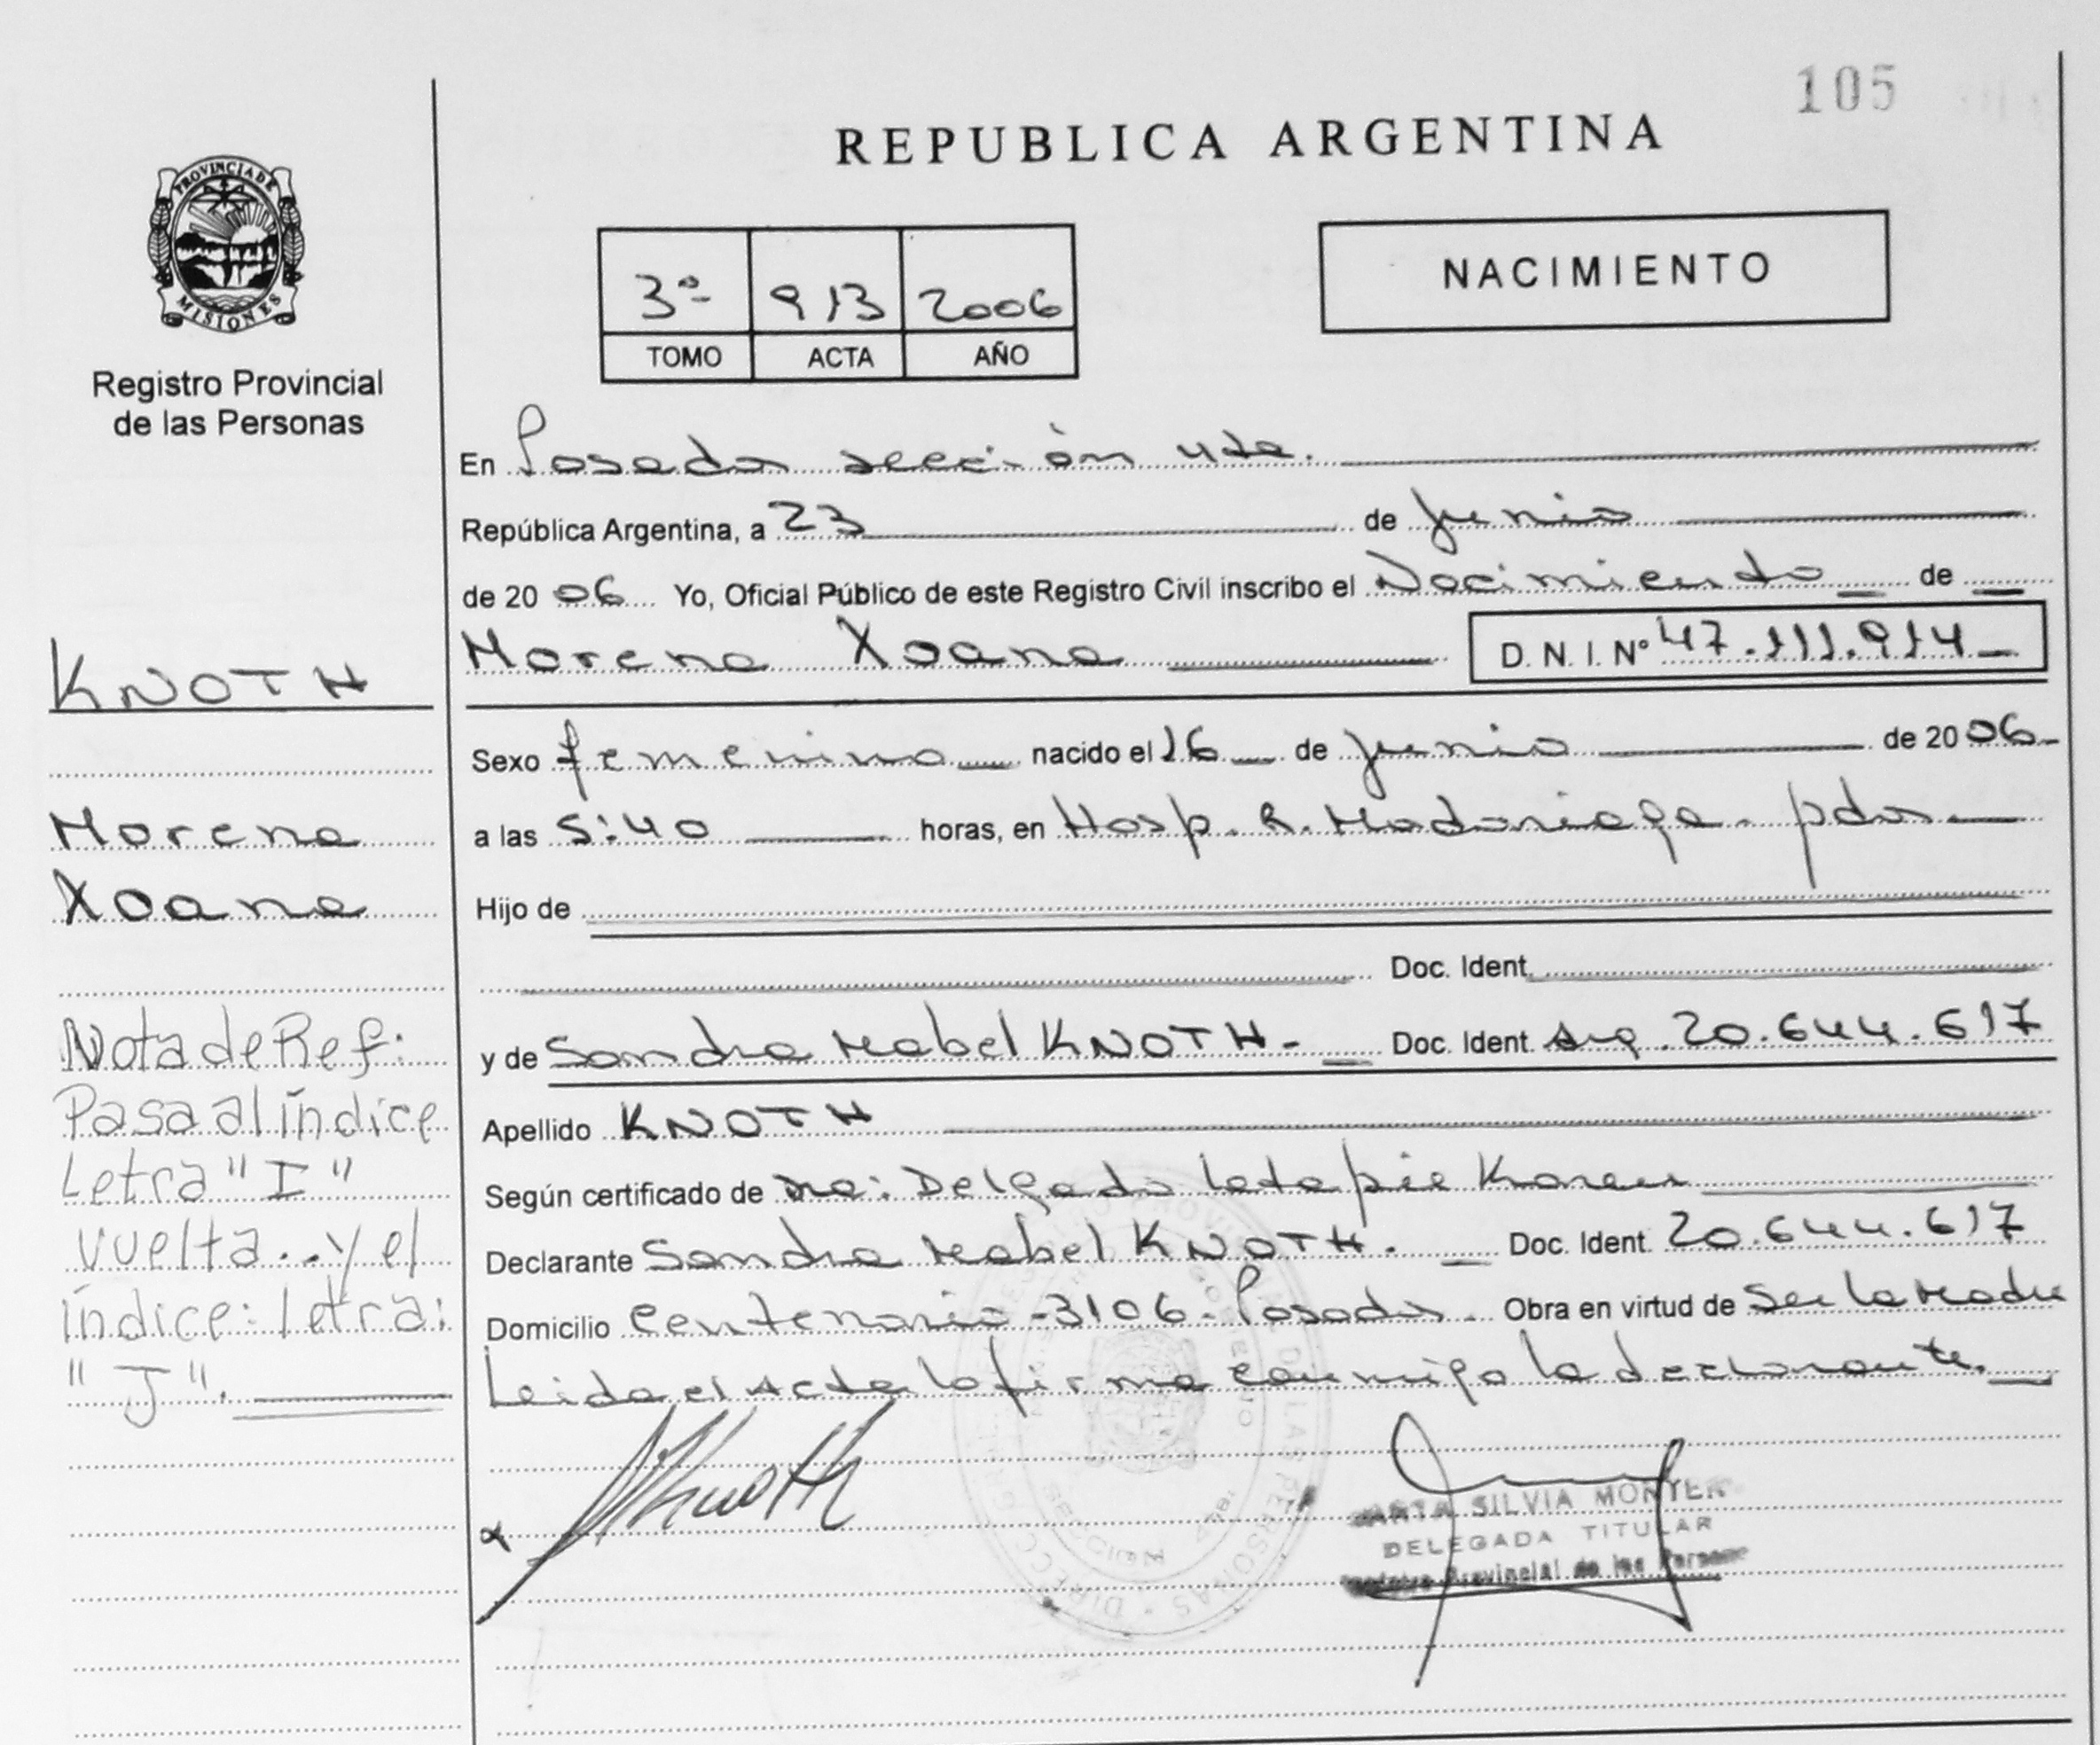 105
REPUBLICA ARGENTINA
PROVINCIA DE
MISIONES
Registro Provincial
de las Personas
3º 913 2006
TOMO ACTA AÑO
NACIMIENTO
En Posadas sección 4ta.
República Argentina, a 23 de junio
de 2006 Yo, Oficial Público de este Registro Civil inscribo el Nacimiento de
Morena Xoana D. N. I. Nº 47.111.914
Sexo femenino nacido el 16 de junio de 2006
a las 5:40 horas, en Hosp. R. Madariaga - pdas
Hijo de
Doc. Ident.
y de Sandra Mabel KNOTH - Doc. Ident. Arg. 20.644.617
Apellido KNOTH
Según certificado de Dra: Delgado Latapie Karen
Declarante Sandra Mabel KNOTH. Doc. Ident. 20.644.617
Domicilio Centenario - 3106 - Posadas. Obra en virtud de Ser la Madre
Leida el Acta la firma conmigo la declarante.
KNOTH
Morena
Xoana
Nota de Ref:
Pasa al índice
Letra "I"
vuelta.. y el
índice: letra:
"J".
Knoth
SILVIA
DELEGADA TITULAR
Provincial de las